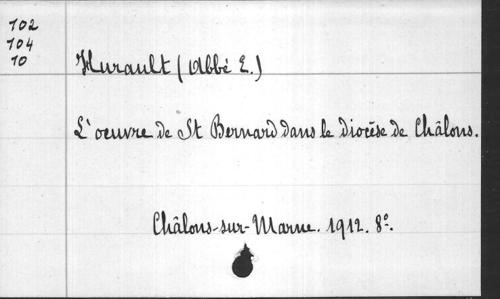 102
104
10
Hurault (Abbé E.)
L'oeuvre de St Bernard dans le diocèse de Châlons.
Châlons-sur-Marne. 1912. 8º.